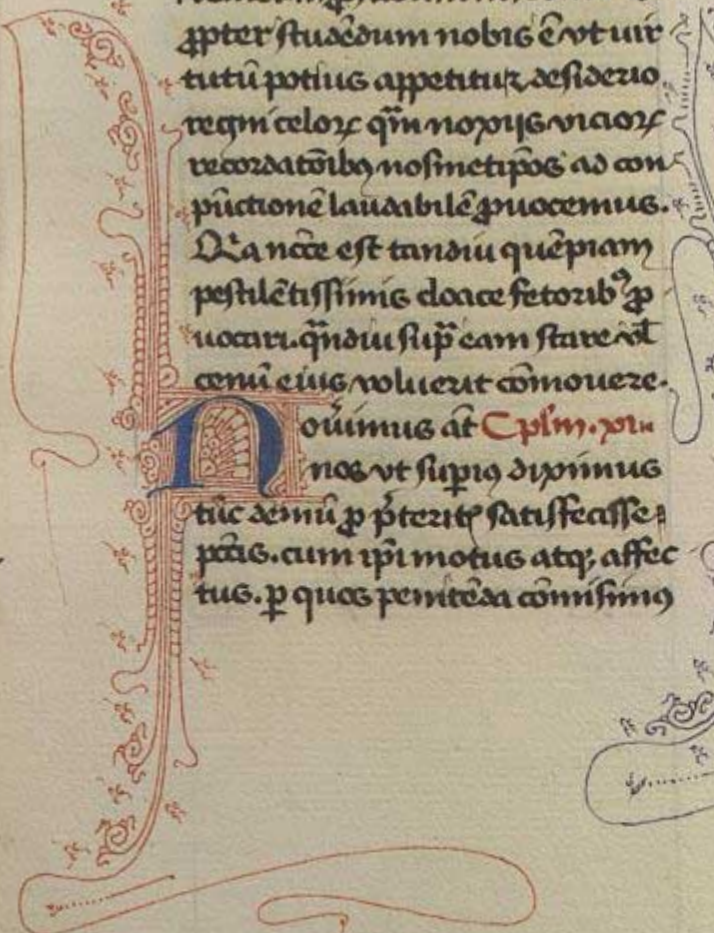 ꝓpter studēdum nobis ē vt uir
tutū potius appetitu ⁊ desiderio
regni celoꝝ qͣm noxijs vicioꝝ
recordatōibꝰ nosmetip̄os ad con
pūctionē laudabilē ꝓuocemus.
Q̄a nēcē est tandiu quēpiam
pestilētissimis cloace fetoribꝰ ꝓ
uocari. qͣ̄diu sup̄ eam stare vl̄
cenū eius voluerit cōmouere.
Nouimus aūt Cpl̄m. xi
nos vt supiꝰ diximus
tūc demū ꝓ p̄teritꝭ satisfecisse
pctīs. cum ip̄i motus atqꝫ affec
tus. ꝑ quos penitēda cōmisimꝰ